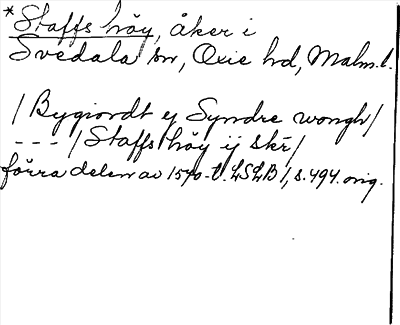 *Staffs höy, åker i
Svedala sn, Oxie hd, Malm. l.
/Bygiordt ej Syndre wongh/
--- /Staffs höy ij skr̄/
förra delen av 1570-t. LSLB 1, s. 494. orig.